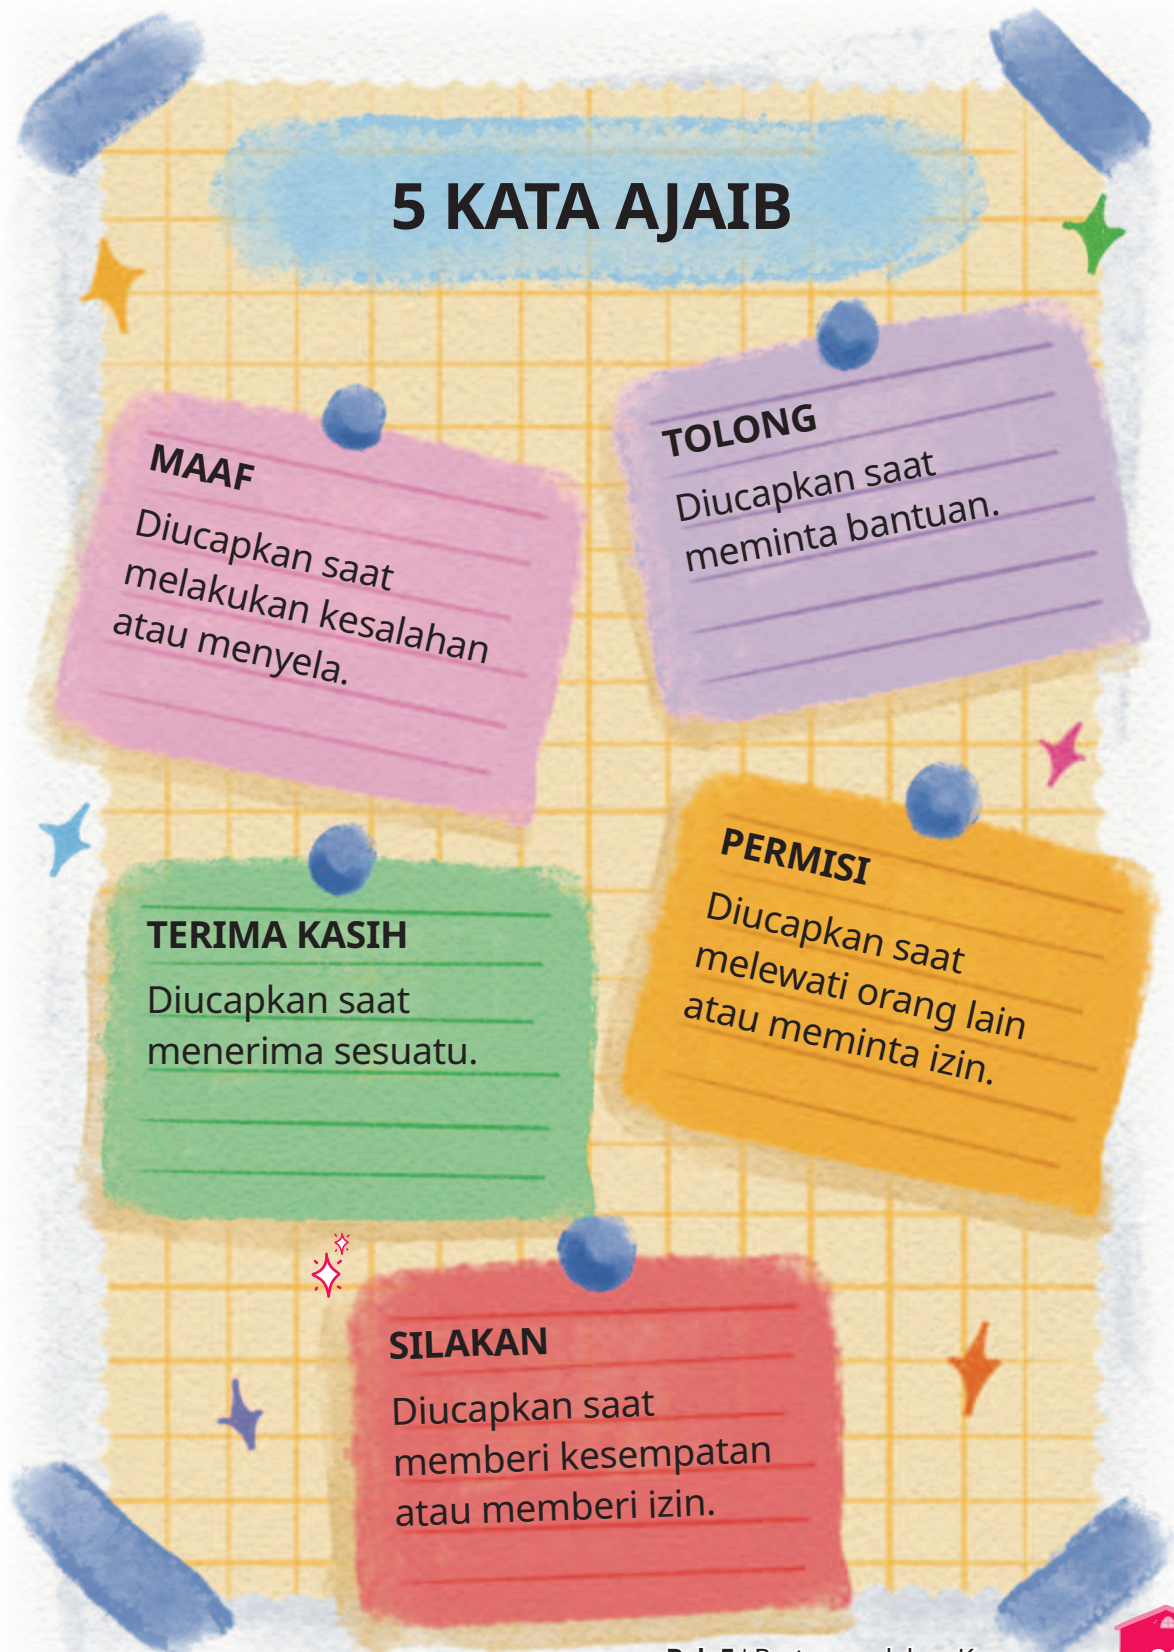 5 KATA AJAIB
MAAF
Diucapkan saat
melakukan kesalahan
atau menyela.
TOLONG
Diucapkan saat
meminta bantuan.
TERIMA KASIH
Diucapkan saat
menerima sesuatu.
PERMISI
Diucapkan saat
melewati orang lain
atau meminta izin.
SILAKAN
Diucapkan saat
memberi kesempatan
atau memberi izin.